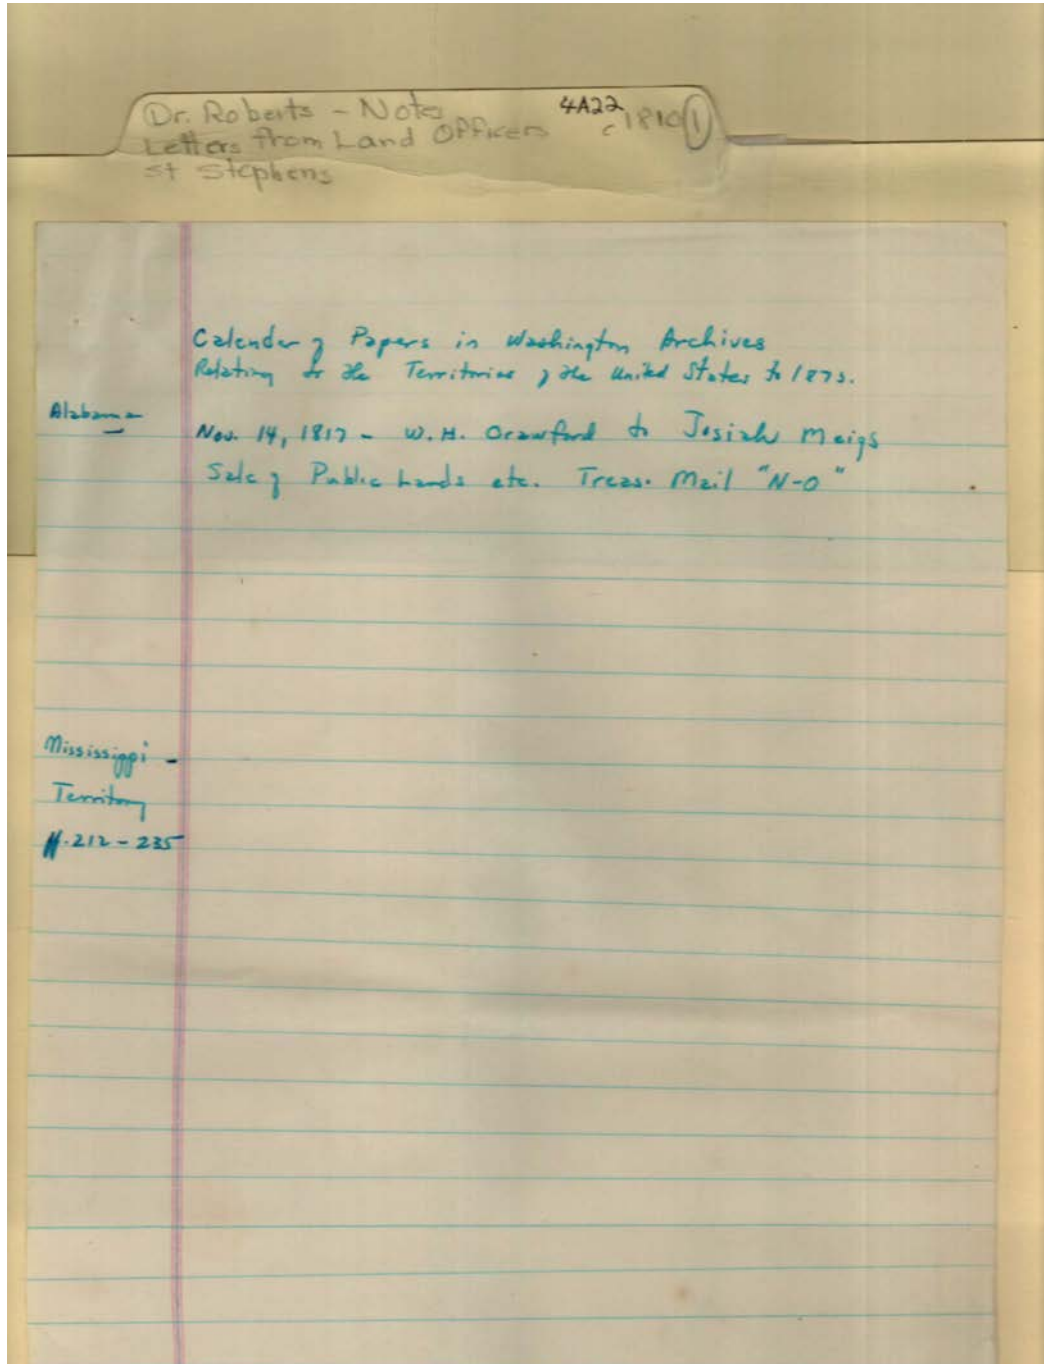 Dr. Roberts - Notes 4A22 c 1810 (1)
Letters from Land Officers
St Stephens
Calender of Papers in Washington Archives
Relating to the Territories of the United States to 1873.
Alabama
Nov. 14, 1817 - W.H. Crawford to Josiah Meigs
Sale of Public Lands etc. Treas. Mail "N-O"
Mississippi -
Territory
pp. 212 - 235